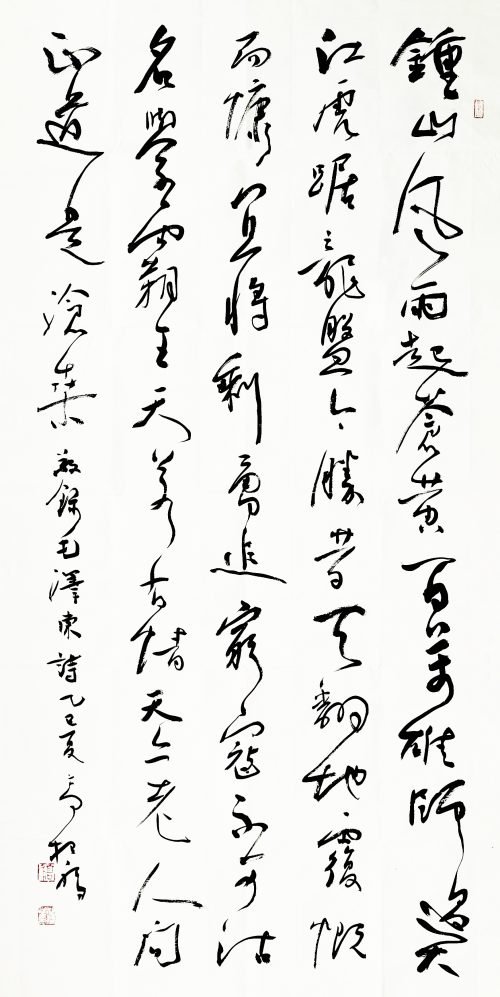 鍾山風雨起蒼黄百萬雄師過大
江虎踞龍盤今勝昔天翻地覆慨
而慷宜將剩勇追窮寇不可沽
名學霸王天若有情天亦老人間
正道是滄桑敬錄毛澤東詩乙巳夏